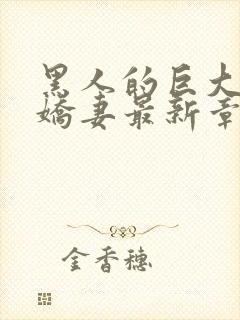 黑人的巨大
嬌妻最新章
金香穗